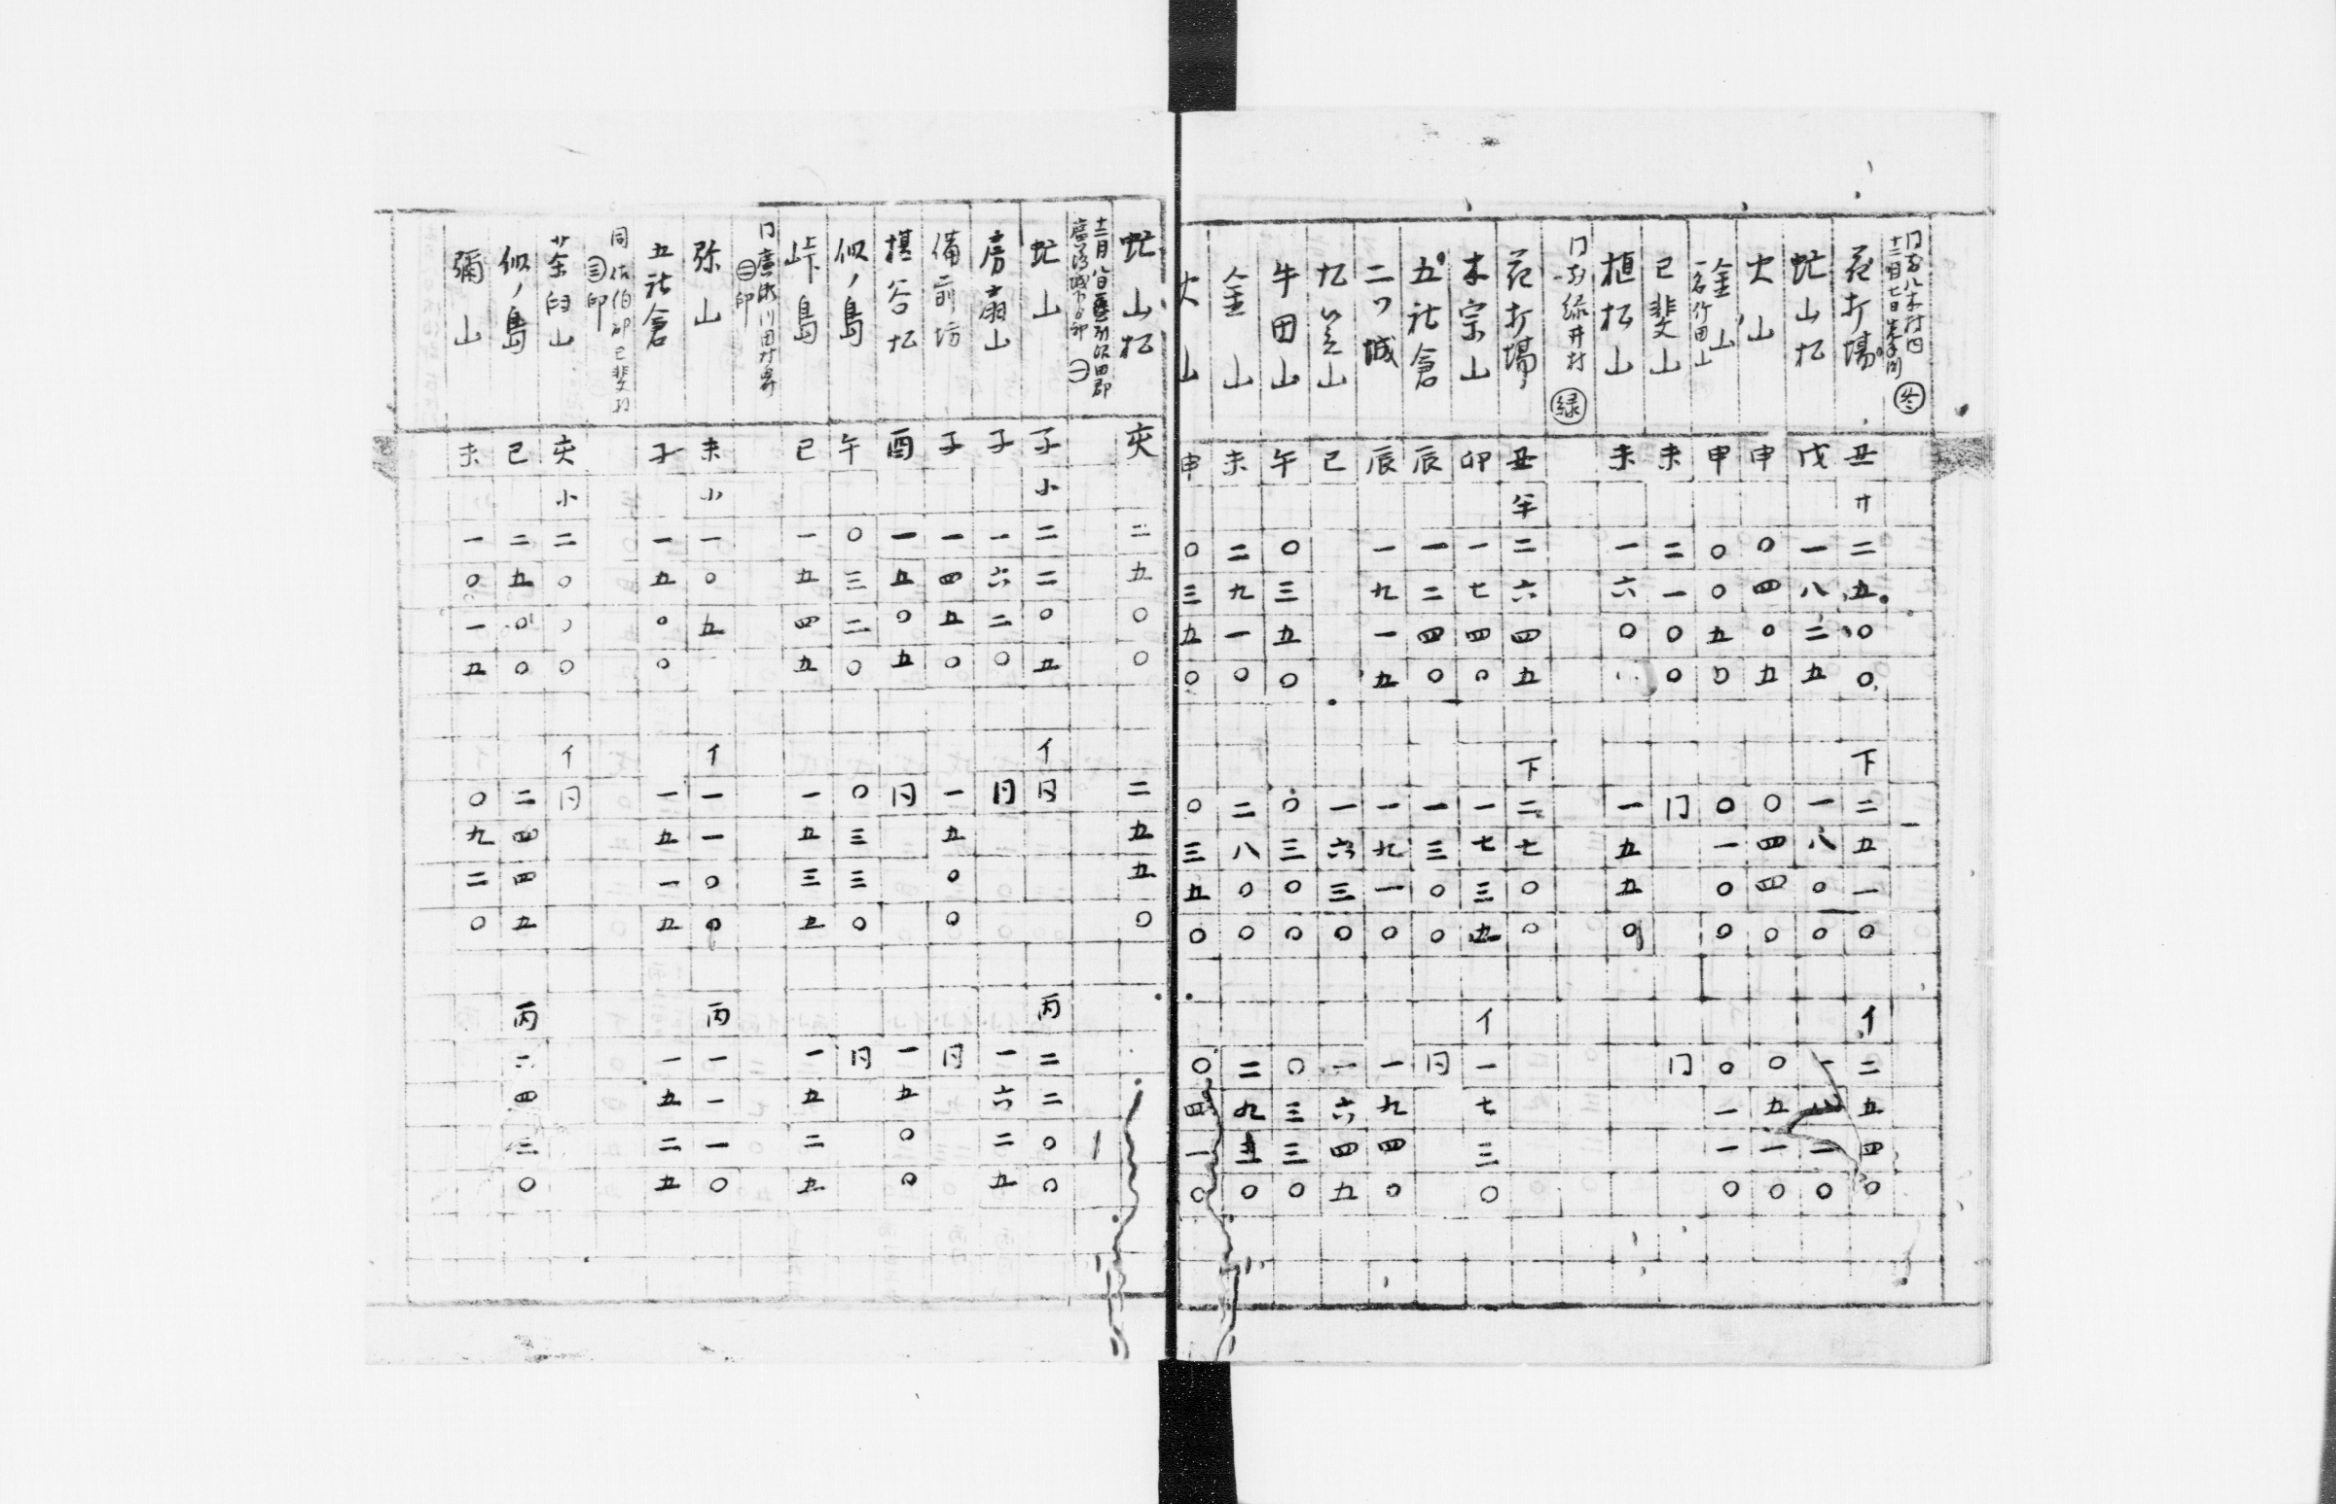 十二月七日
花打場 丑 廾 二五〇〇 下 二五一〇 イ 二五四〇
虻山松 戌 一八二五 一八〇〇
火山 申 〇四〇五 〇四四〇 〇五一〇
金山 一名竹田山 申 〇〇五〇 〇一〇〇 〇一一〇
己斐山 未 二一〇〇 门 门
植松山 未 一六〇 一五五〇
门郡緑井村 緑
花打場 丑 半 二六四五 下 二七〇〇
木宗山 卯 一七四〇 一七三五 イ 一七三〇
五社倉 辰 一二四〇 一三〇〇 同
二ツ城 辰 一九一五 一九一〇 一九四〇
山 巳 一六三〇 一六四五
牛田山 午 〇三五〇 〇三〇〇 〇三三〇
金山 未 二九一〇 二八〇〇 二九五〇
火山 申 〇三五〇 〇三五〇 〇四一〇
虻山松 亥 二五〇〇 二五五〇
十二月八日
虻山 子 小 二二〇五 イ 同 丙 二二〇〇
房扇山 子 一六二〇 同 一六二五
備前坊 子 一四五〇 一五〇〇 同
棋谷松 酉 一五〇五 同 一五〇〇
似ノ島 午 〇三二〇 〇三三〇 同
峠島 巳 一五四五 一五三五 一五二五
二印
弥山 未 小 一〇五 イ 一一〇〇 丙 一一一〇
五社倉 子 一五〇〇 一五一五 一五二五
同佐伯郡己斐村 三印
茶臼山 亥 小 二〇〇〇 イ 同
似ノ島 巳 二五〇〇 二四四五 丙 二四三〇
彌山 未 一〇一五 〇九二〇